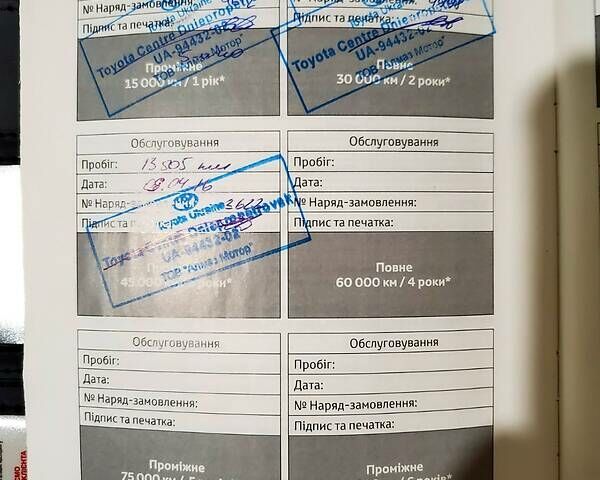 № Наряд-замовлення:
Підпис та печатка:
Toyota Centre Dniepropetrovsk
UA-94432-02
ТОВ "Алмаз Мотор"
Проміжне
15 000 км / 1 рік*
Підпис та печатка:
Toyota Centre Dniepropetrovsk
UA-94432-02
ТОВ "Алмаз Мотор"
Повне
30 000 км / 2 роки*
Обслуговування
Пробіг: 13 505 км
Дата: 09.04.16
№ Наряд-замовлення
Підпис та
Toyota Ukraine
Toyota Centre Dniepropetrovsk
UA-94432-02
ТОВ "Алмаз Мотор"
45 000 роки*
Обслуговування
Пробіг:
Дата:
№ Наряд-замовлення:
Підпис та печатка:
Повне
60 000 км / 4 роки*
Обслуговування
Пробіг:
Дата:
№ Наряд-замовлення:
Підпис та печатка:
Проміжне
75 000 км
Обслуговування
Пробіг:
Дата:
№ Наряд-замовлення:
Підпис та печатка:
Проміжне
КЛІЄНТА